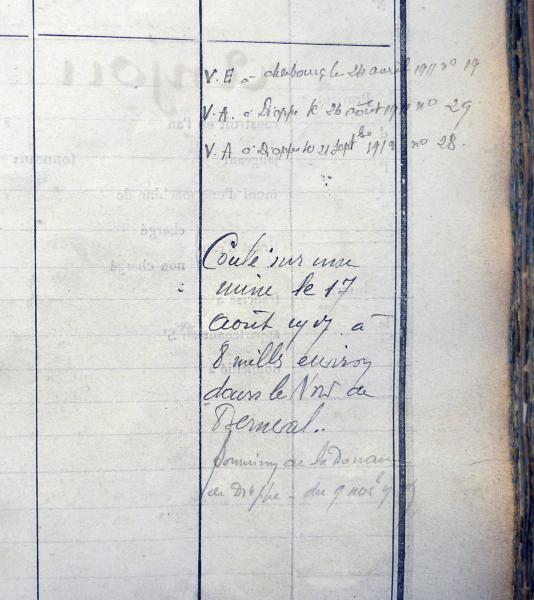 V.E à cherbourg le 24 avril 1911 nº 19
V.A. à Dieppe le 26 août 1911 nº 29
V.A à Dieppe le 21 Septbre 1912 nº 28.
Coulé sur une
mine le 17
août à
8 mills environ
dans le Nord de
Berneval.
de la Douane
de Dieppe - du 9 nov